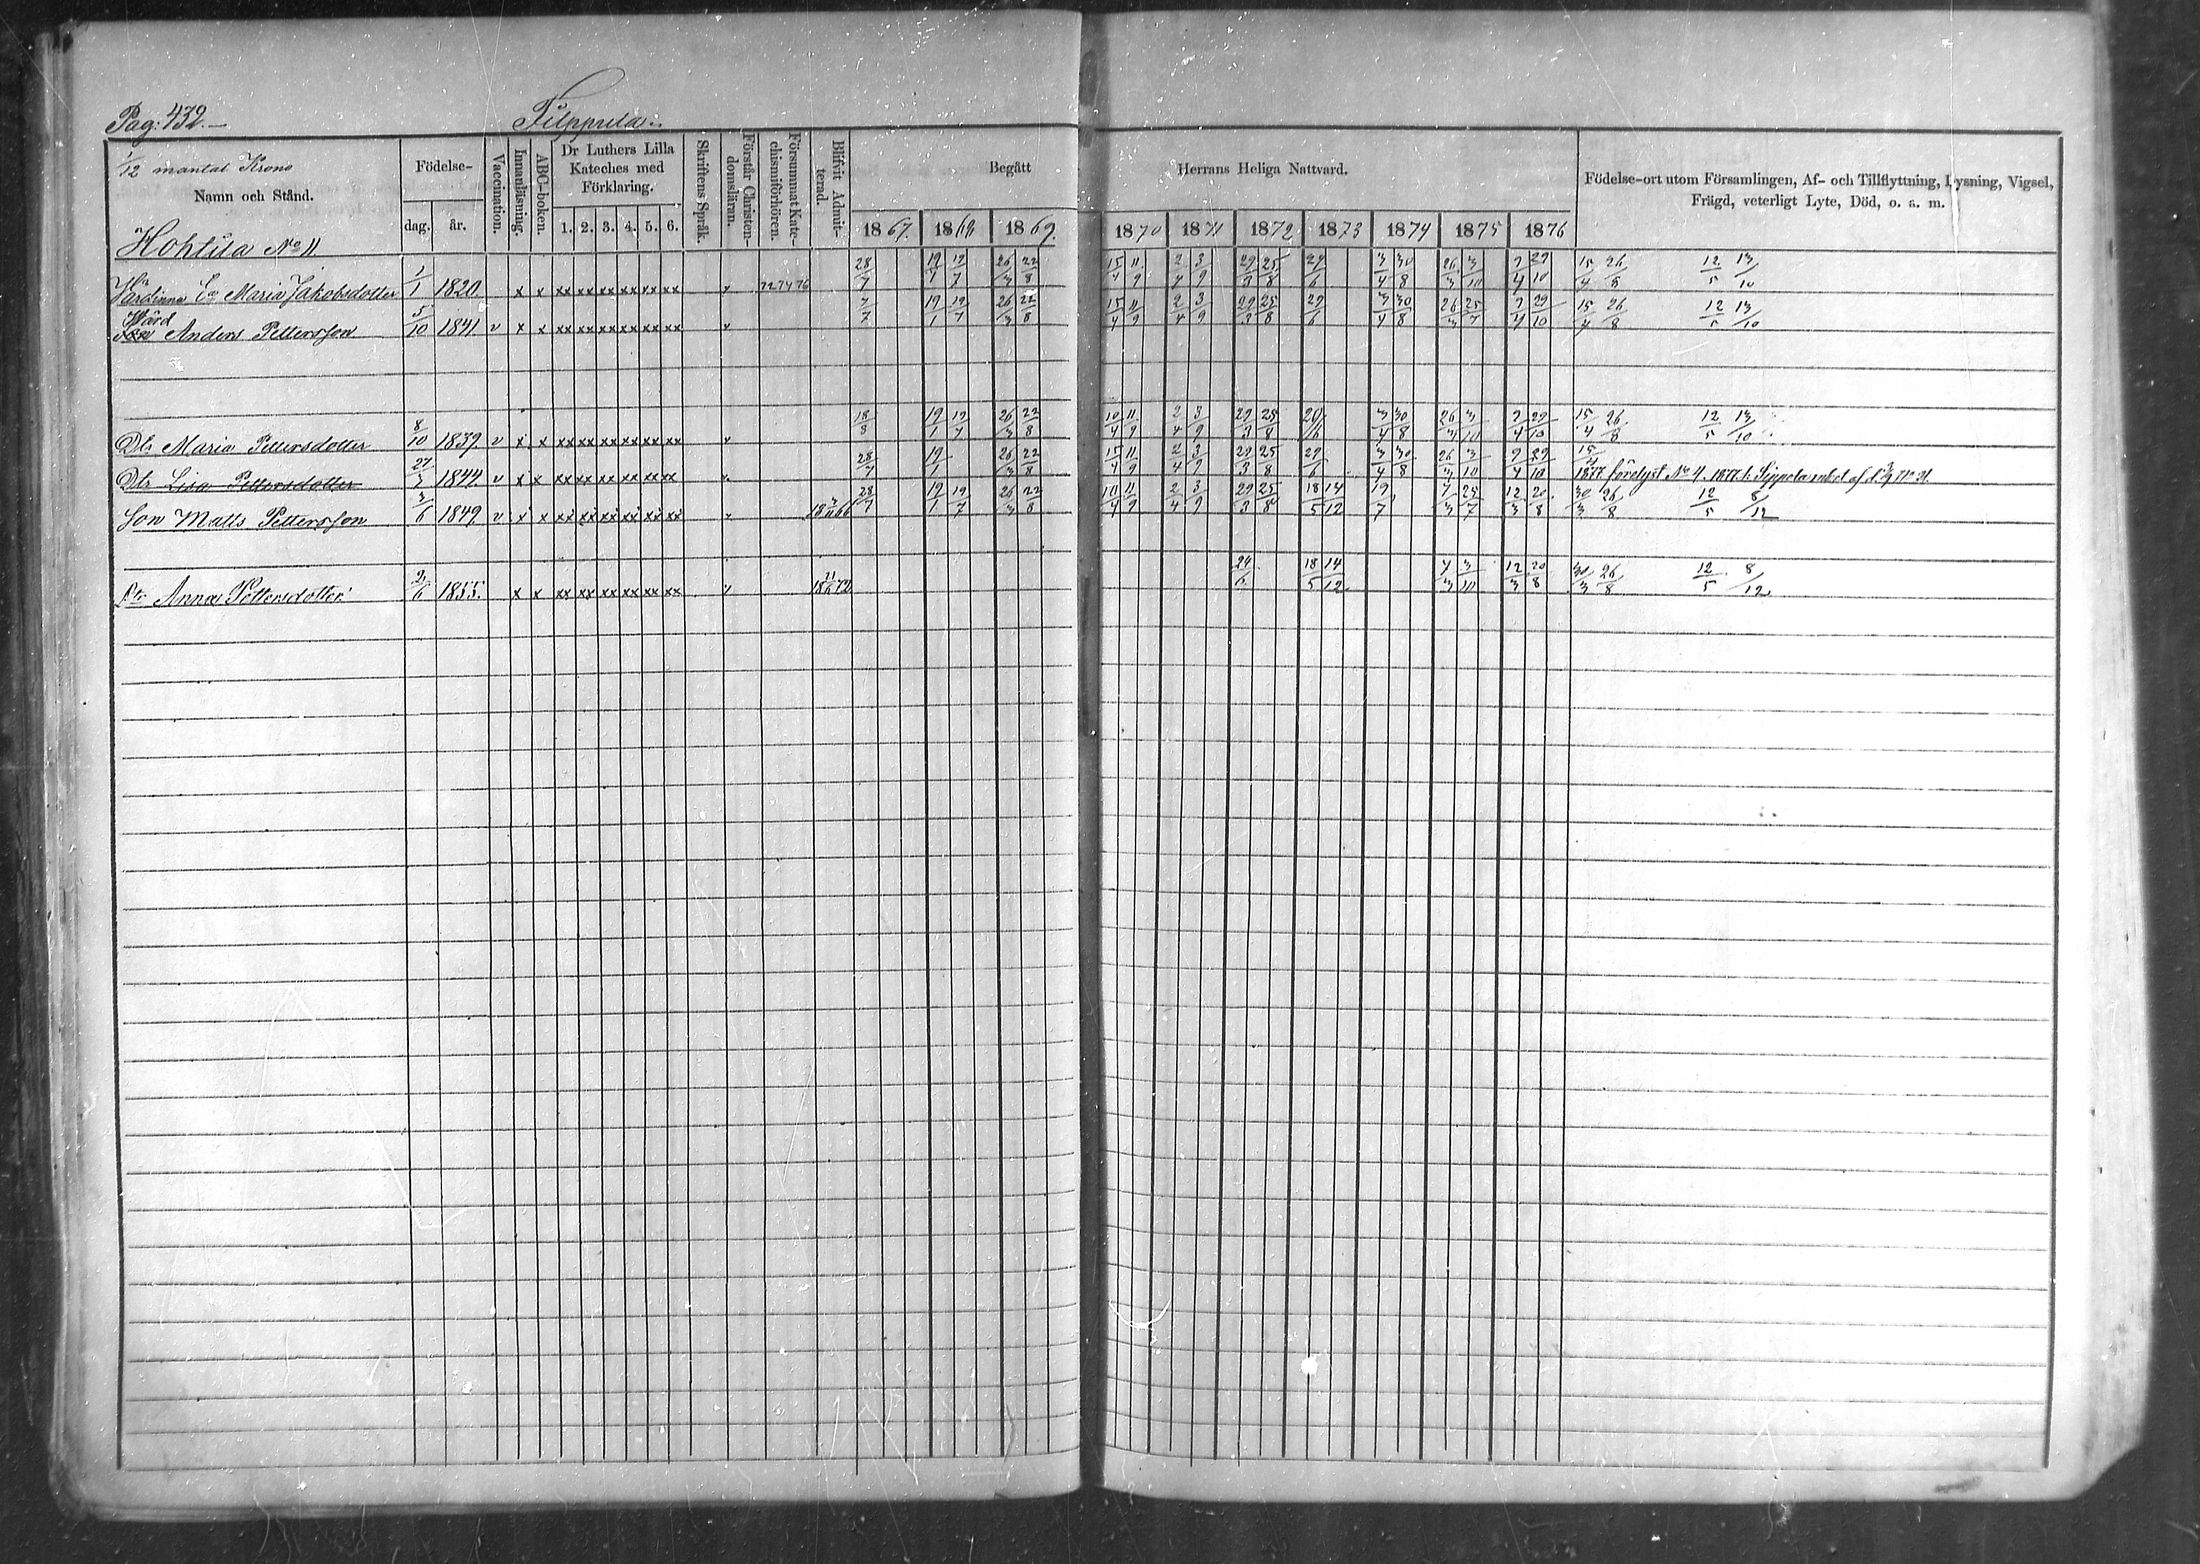 Pag: 432.
Filppula
1/12 mantal Krono
Namn och Stånd.
Hohtila No 11
Födelse-
dag. år.
Vaccination.
Innanläsning.
ABC-boken.
Dr Luthers Lilla
Kateches med
Förklaring.
1. 2. 3. 4. 5. 6.
Skriftens Språk.
Förstår Christen-
domsläran.
Försummat Kate-
chismiförhören.
Blifvit Admit-
terad.
Begått Herrans Heliga Nattvard.
1867. 1868 1869. 1870 1871 1872 1873 1874 1875 1876
Födelse-ort utom Församlingen, Af- och Tillflyttning, Lysning, Vigsel,
Frägd, veterligt Lyte, Död, o. s. m.
Värdinna Ea Maria Jakobsdotter 1/1 1820. x x xx xx xx xx xx xx 72 74 76 28/7 19/1 19/7 26/3 22/8 15/4 11/9 2/4 3/9 29/3 25/8 29/6 3/4 30/8 26/3 3/10 2/4 29/10 15/4 26/8 12/5 13/10
Värd
Son Anders Pettersson 5/10 1841 v x x xx xx xx xx xx xx 7/7 19/1 19/7 26/3 22/8 15/4 11/9 2/4 3/9 29/3 25/8 29/6 3/4 30/8 26/3 25/7 2/4 29/10 15/4 26/8 12/5 13/10
Dtr Maria Pettersdotter 8/10 1839 v x x xx xx xx xx xx xx 18/8 19/1 19/7 26/3 22/8 10/4 11/9 2/4 3/9 29/3 25/8 29/6 3/4 30/8 26/3 3/10 2/4 29/10 15/4 26/8 12/5 13/10
Dtr Lisa Pettersdotter 27/3 1844 v x x xx xx xx xx xx xx 28/7 19/1 26/3 22/8 15/4 11/9 2/4 3/9 29/3 25/8 29/6 3/4 30/8 26/3 3/10 2/4 29/10 15/4
1877 förelyst No 4. 1877 t. Sippola enbet af d.
Son Matts Pettersson 3/6 1849 v x x xx xx xx xx xx xx 28/7 19/1 19/7 26/3 22/8 10/4 11/9 2/4 3/9 29/3 25/8 18/5 14/12 19/7 7/3 25/7 12/3 20/8 30/3 26/8 12/5 8/12
Dtr Anna Pettersdotter 2/6 1855. x x xx xx xx xx xx xx 24/6 18/5 14/12 7/3 3/10 12/3 20/8 30/3 26/8 12/5 8/12